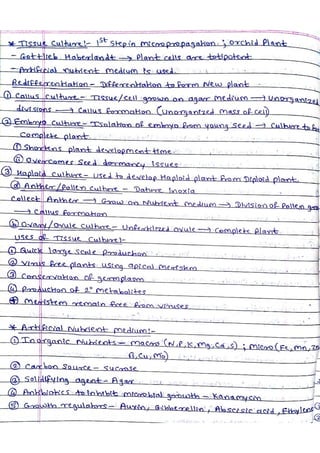 * Tissue Culture:- 1st step in micropropagation. ; Orchid Plant
- Gottlieb Haberlandt → Plant cells are totipotent
- Artificial nutrient medium is used.
Redifferentiation - Differentiation to form New plant
① Callus culture - Tissue/cell grown on agar medium → Unorganized
divisions → Callus formation (Unorganized mass of cell)
② Embryo culture - Isolation of embryo from young seed → Culture to
Complete plant.
① Shortens plant development time.
② Overcomes seed dormancy issues
③ Haploid culture - Used to develop Haploid plant from Diploid plant.
ⓐ Anther/Pollen culture - Datura Inoxia
collect Anther → Grow on Nutrient medium → Division of Pollen
→ Callus formation
ⓑ Ovary/ovule culture - Unfertilized ovule → Complete plant
Uses of Tissue Culture:-
① Quick large scale production
② Virus free plants using apical meristem
③ Conservation of germplasm
④ Production of 2° metabolites
Meristem remain free from viruses
* Artificial Nutrient medium:-
① Inorganic Nutrients - macro (N,P,K,Mg,Ca,S) ; Micro (Fe, Mn, Zn
B, Cu, Mo)
② Carbon source - sucrose
③ Solidifying agent - Agar
④ Antibiotics to inhibit microbial growth - Kanamycin
⑤ Growth regulators - Auxin, Gibberellin, Abscisic acid, Ethylene